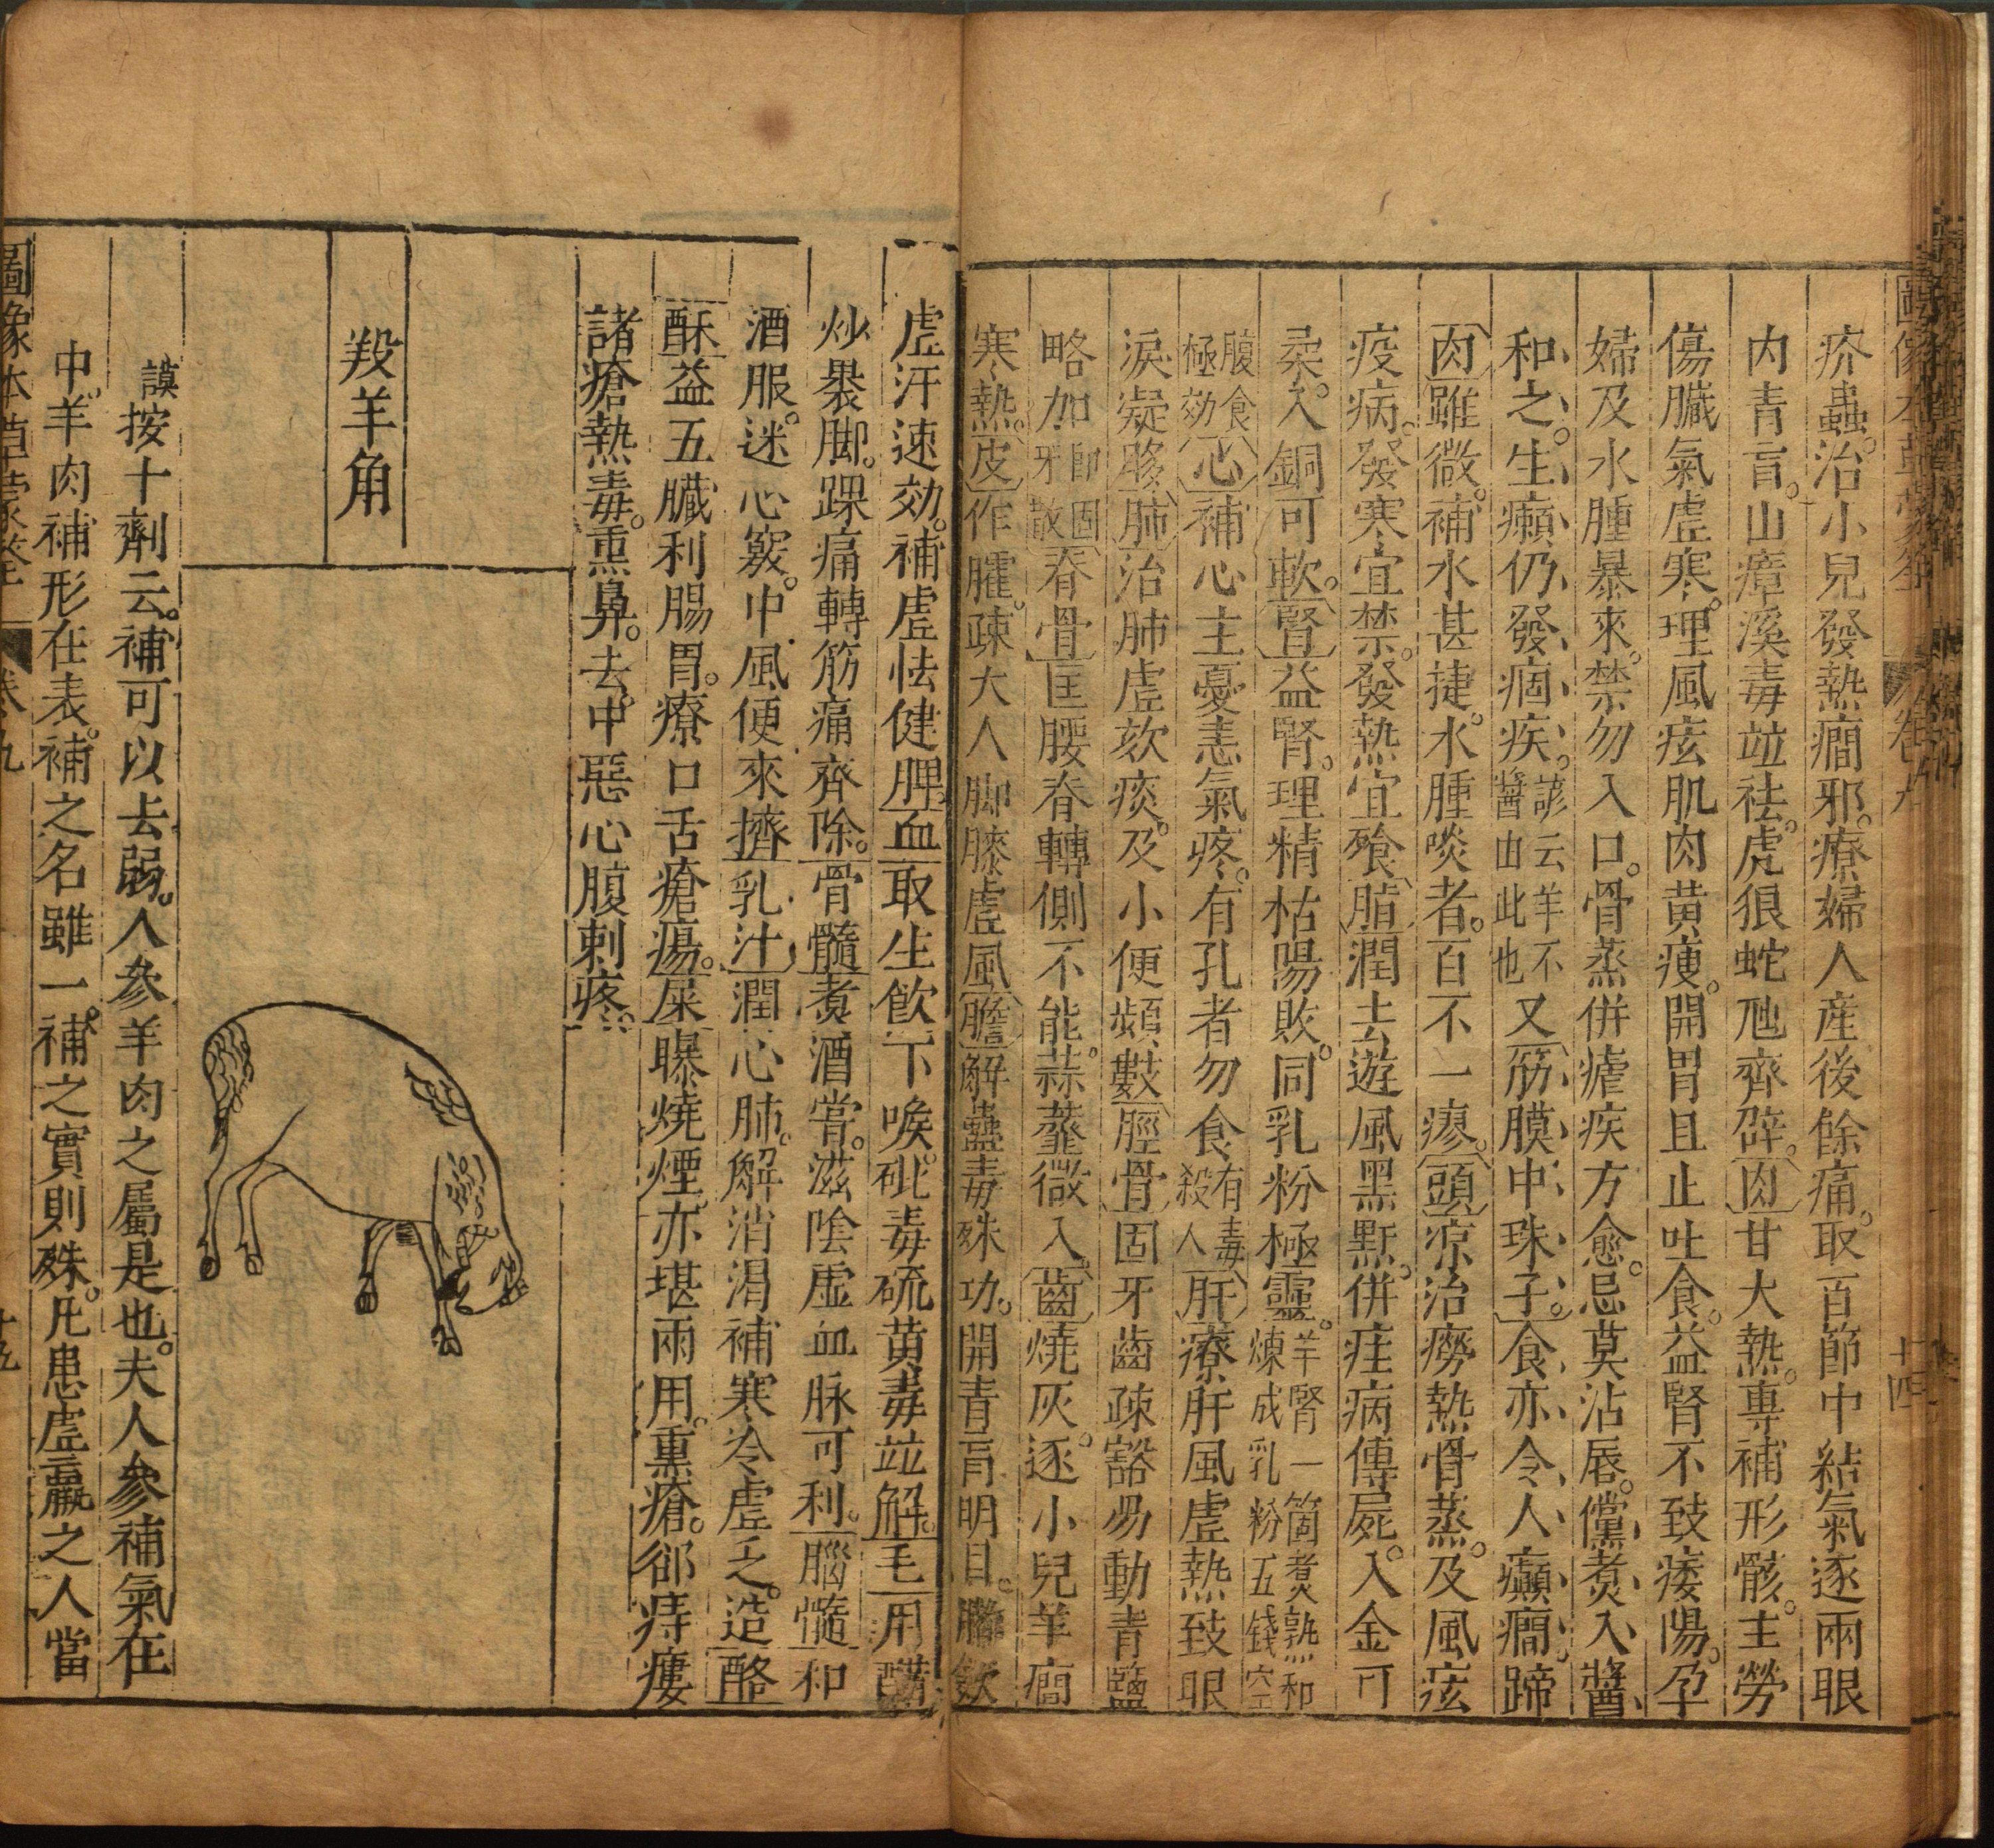 圖像本草蒙筌 卷九 十四
疥蟲。治小兒發熱癎邪。療婦人産後餘痛。取百節中結氣逐兩眼
内青盲。山瘴溪毒竝祛。虎狼蛇虺齊辟。肉甘大熱。專補形骸。主勞
傷臟氣虛寒。理風痃肌肉黄瘦。開胃且止吐食。益腎不致痿陽。孕
婦及水腫暴來。禁勿入口。骨蒸併瘧疾方愈。忌莫沾唇。儻煮入醬
和之。生癩仍發痼疾。諺云羊不醬由此也又筋膜中珠子。食亦令人癲癎。蹄
肉雖微。補水甚捷。水腫啖者。百不一瘳。頭凉治癆熱骨蒸。及風痃
疫病。發寒宜禁。發熱宜飱。脂潤去遊風黑䵟。併疰病傳屍。入金可
柔。入銅可軟。腎益腎。理精枯陽敗。同乳粉極靈。羊腎一箇煮熟和煉成乳粉五錢空
腹食極効心補心主憂恚氣疼。有孔者勿食有毒殺人肝療肝風虛熱致眼
淚凝眵。肺治肺虛欬痰。及小便頻數。脛骨固牙齒疎豁易動青鹽
略加即固牙散脊骨匡腰脊轉側不能。蒜虀微入。齒燒灰。逐小兒羊癎
寒熱。皮作臛。疎大人脚膝虛風。膽解蠱毒殊功。開青盲明目。
虛汗速効。補虛怯健脾。血取生飲下喉。砒毒硫黄毒竝解。毛用醋
炒褁脚。踝痛轉筋痛齊除。骨髓煮酒嘗。滋陰虛血脉可利。腦髓和
酒服。迷心竅。中風便來。擠乳汁潤心肺。解消渴補寒冷虛乏。造酪
酥益五臟利腸胃。療口舌瘡瘍。屎曝燒煙。亦堪兩用。熏瘡。郤痔瘻
諸瘡熱毒。熏鼻。去中惡心腹刺疼。
羖羊角
謨按十劑云。補可以去弱。人參羊肉之屬是也。夫人參補氣在
中。羊肉補形在表。補之名雖一。補之實則殊。凡患虛羸之人當
圖像本草蒙筌 卷九 十五